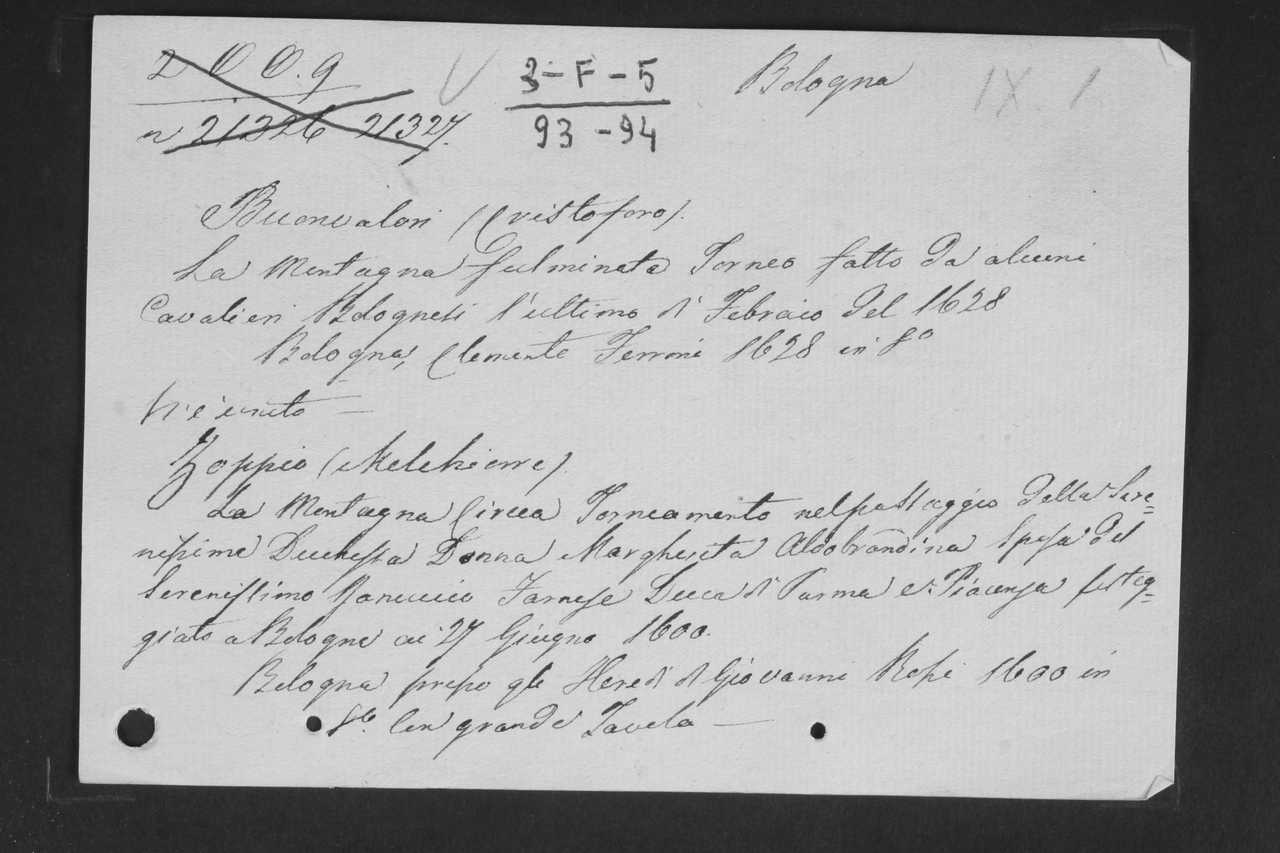 2 0 0. 9
n 21326 21327.
V
3-F-5
93-94
Bologna
IX. 1
Buonvalori (Cristoforo).
La Montagna fulminata Torneo fatto da alcuni
Cavalieri Bolognesi l'ultimo di Febraio del 1628
Bologna, Clemente Ferroni 1628 in fo
Vi è unito —
Zoppio (Melchiorre).
La Montagna Circea Torneamento nel passaggio della Sere=
nissima Duchessa Donna Margherita Aldobrandina Sposa del
Serenissimo Ranuccio Farnese Duca di Parma e Piacenza festeg=
giato a Bologna ai 27 Giugno 1600.
Bologna presso gli Heredi di Giovanni Rossi 1600 in
fo. Con grande Tavola —